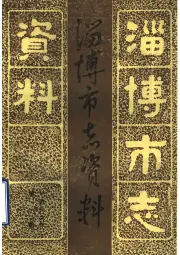 淄博市志
資料
淄博市志资料